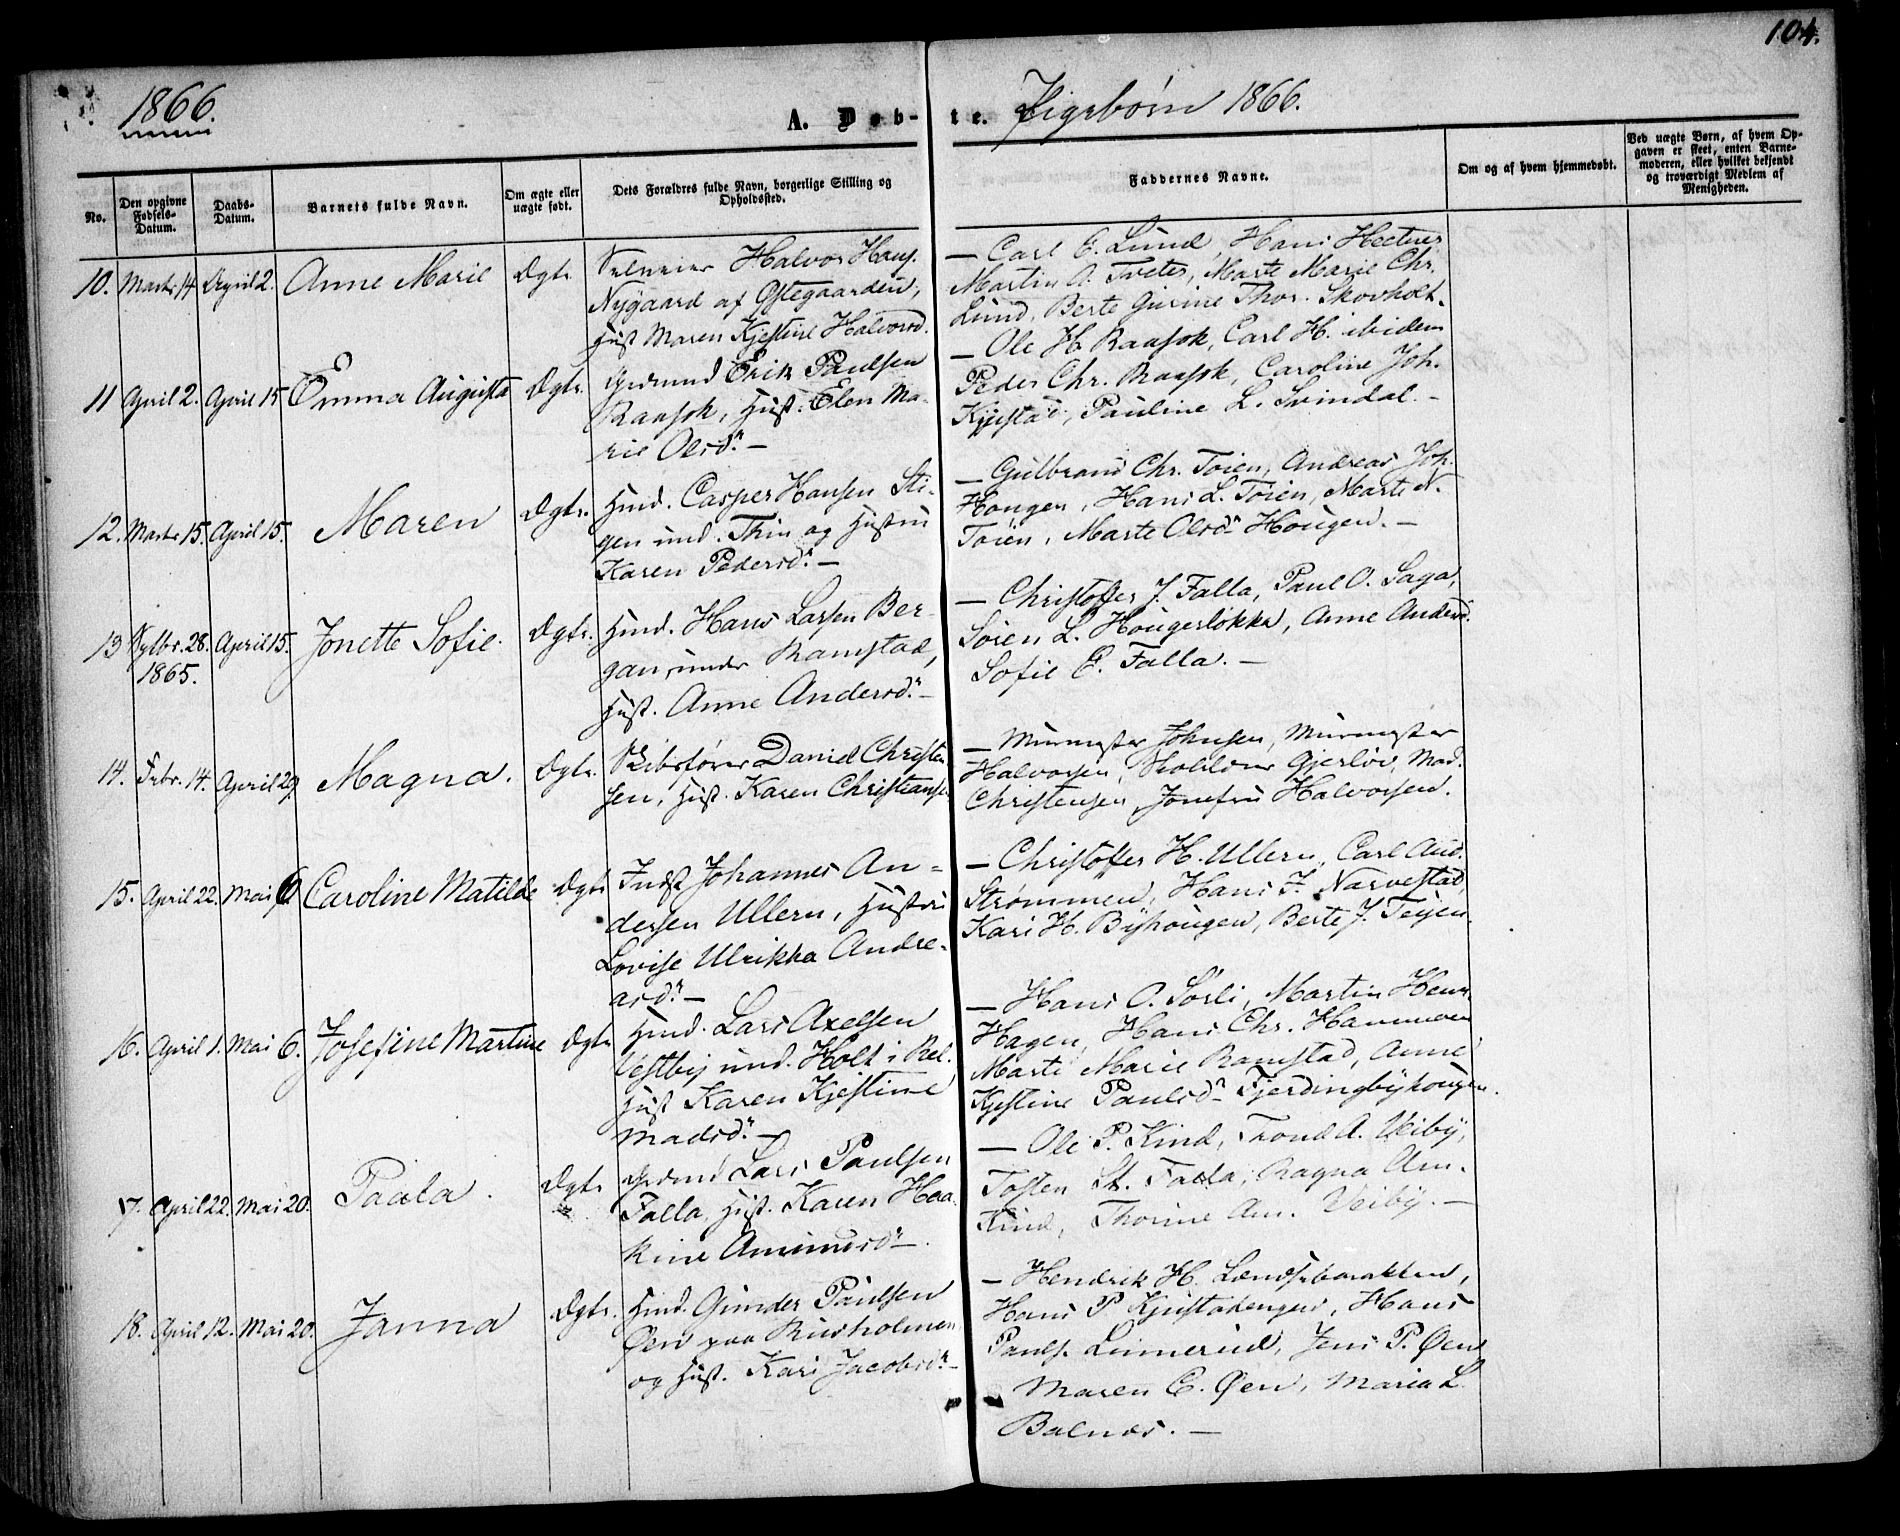 104.
1866.
A. Døb-te. Pigebørn 1866.
No.
Den opgivne Fødsels-Datum.
Daabs-Datum.
Barnets fulde Navn.
Om ægte eller uægte født.
Dets Forældres fulde Navn, borgerlige Stilling og Opholdssted.
Faddernes Navne.
Om og af hvem hjemmedøbt.
Ved uægte Børn, af hvem Opgaven er skeet, enten Barnemoderen, eller hvilket bekjendt og troværdigt Medlem af Menigheden.
10. Marts 14 April 2. Anne Marie Ægte.
Selveier Halvor Hans.
Nygaard af Østegaarden,
Hust Maren Kjestine Halvorsd.
— Carl E. Lund, Hans Hectner
Martin A. Tveter, Marte Marie Chr.
Lund, Berte Gurine Thor. Skovholt.
11 April 2. April 15 Emma Augusta Ægte.
Grdmnd Erik Paulsen
Raasok, Hust. Elen Ma-
rie Olsdr. —
— Ole H. Raasok, Carl H. ibidem
Peder Chr. Raasok, Caroline Joh.
Kjustad, Pauline L. Svindal. —
12. Marts 15. April 15. Maren Ægte.
Hmd. Casper Hansen Sti-
gen und. Thin og Hustru
Karen Pedersdr. —
— Gulbrand Chr. Toien, Andreas Joh.
Hougen, Hans L. Toien, Marte N.
Toien, Marte Olsdr Hougen. —
13 Sptbr. 28. 1865. April 15. Jonette Sofie. Ægte.
Hmd. Hans Larsen Ber-
gan, under Ramstad,
Hust. Anne Andersdr. —
— Christoffer J. Falla, Paul O. Saga,
Søren L. Hougerløkka, Anne Andersd.
Sofie E. Falla. —
14. Febr. 14. April 29. Magna. Ægte.
Skibsfører David Christen
sen, Hust. Karen Christians.
— Murmester Johnsen, Murmester
Halvorsen, Gjerløv, Mad.
Christensen, Jomfru Halvorsen.
15. April 22. Mai 6. Caroline Matilde Ægte
Indst Johannes An-
dersen Ullern, Hustru
Lovise Ulrikka Andre-
asdr. —
— Christoffer H. Ullern, Carl And.
Strømmen, Hans J. Narvestad,
Kari H. Byhougen, Berte J. Teijen.
16. April 1. Mai 6. Josefine Martine Ægte
Hmd. Lars Axelsen
Vestby und. Holt i Rel.
Hust Karen Kjestine
Madsdr. —
— Hans O. Sørli, Martin Henr.
Hagen, Hans Chr. Hammeren
Marte Marie Ramstad, Anne
Kjestine Paulsdr Fjerdingbyhougen.
17. April 22. Mai 20. Paula. Ægte
Grdmd Lars Paulsen
Falla, Hust. Karen Haa-
kine Amundsdr —.
— Ole P. Kind, Trond A. Veiby,
Tosten St. Falla, Ragna Am.
Kind, Thorine Am. Veiby. —
18. April 12. Mai 20. Janna Ægte.
Hmd. Gunder Paulsen
Øen paa Riisholmen
og Hust. Kari Jacobsdr. —
— Hendrik H. Lændsebarakken,
Hans P Kjustadengen, Hans
Pauls. Linnerud, Jens P. Øen
Maren C. Øen, Maria L.
Balnæs. —